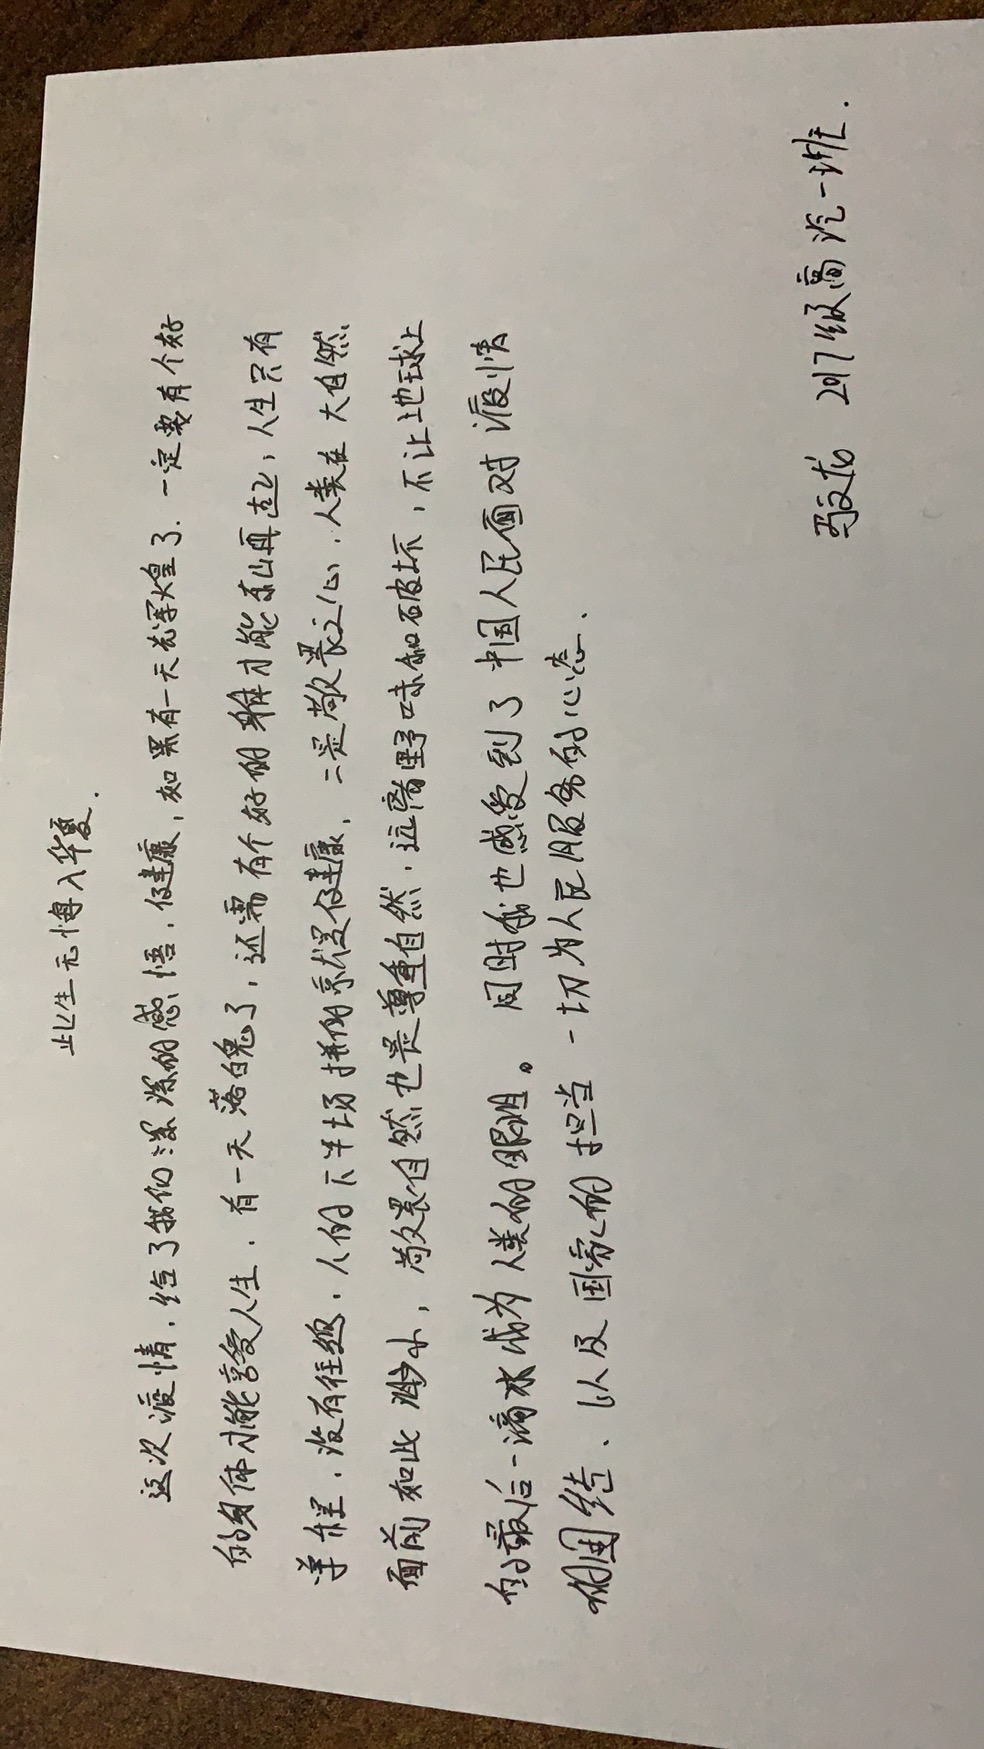 此生无悔入华夏.
这次疫情,给了我们深深的感悟,健康,如果有一天光辉煌了.一定要有个好
的身体才能享受人生.有一天落白鬼了,还需有个好的躯体才能东山再起,人生只有
单程,没有往返.人的下半场拼的就是健康.二是敬畏之心,人类在大自然
面前如此渺小,敬畏自然也是尊重自然,远离野味和破坏,不让地球上
的最后一滴水成为人类的眼泪。同时我也感受到了中国人民面对疫情
的团结、以及国家的担当 一切为人民服务的心态.
文龙 2017级高汽一班.